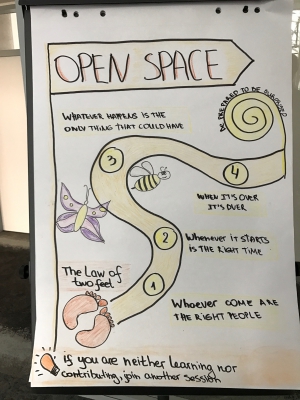 OPEN SPACE
BE PREPARED TO BE SURPRISED
WHATEVER HAPPENS IS THE
ONLY THING THAT COULD HAVE
3
4
WHEN IT'S OVER
IT'S OVER
2
Whenever IT STARTS
IS THE RIGHT TIME
The Law of
two feet
1
Whoever COME ARE
THE RIGHT PEOPLE
if you are neither learning nor
contributing, join another session